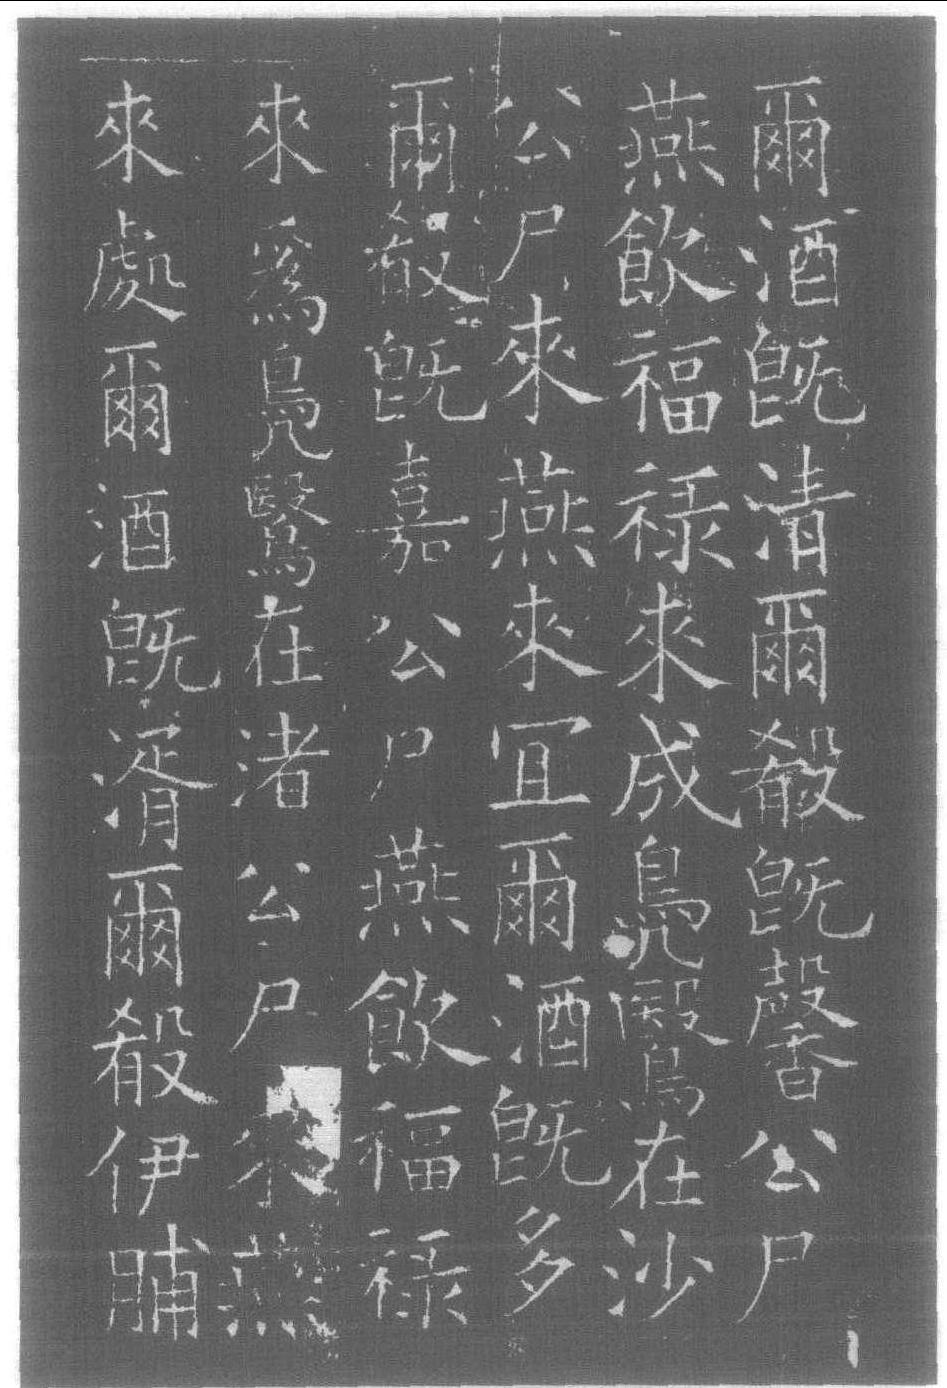 爾酒旣清爾殽旣馨公尸
燕飲福祿來成鳧鷖在沙
公尸來燕來宜爾酒旣多
爾殽旣嘉公尸燕飲福祿
來爲鳧鷖在渚公尸來燕
來處爾酒旣湑爾殽伊脯